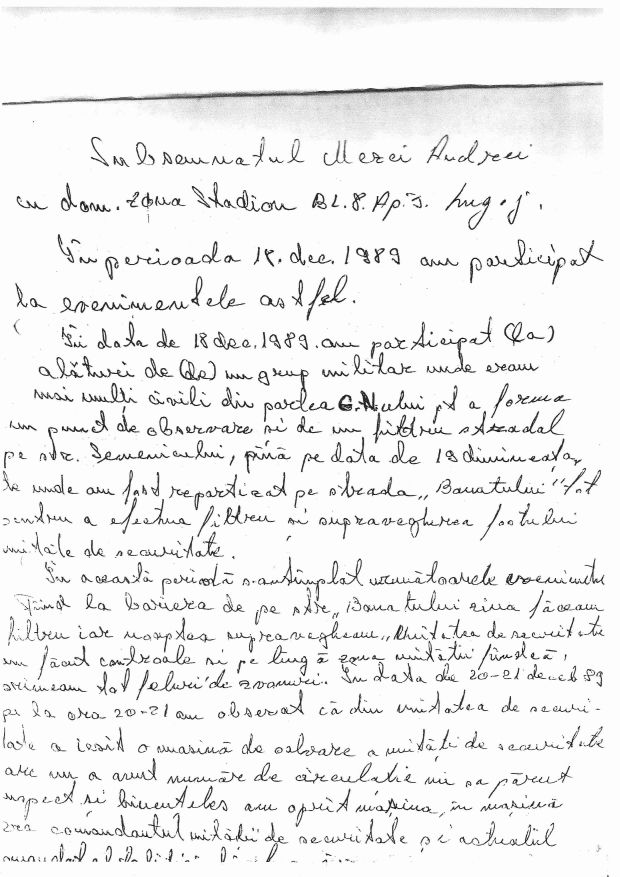 Subsemnatul Merei Andrei
cu dom. zona Stadion BL.8. Ap.3. Lugoj.
În perioada dec. 1989 am participat
la evenimentele astfel.
În data de 18 dec. 1989. am participat (la)
alături de (de) un grup militar unde eram
mai mulți civili din partea G.N.ului, a forma
un punct de observare si de un filtru stradal
pe str. Semenicului, pînă pe data de 19 dimineața,
de unde am fost repartizat pe strada „Banatului" tot
pentru a efectua filtru si supravegherea fostului
unitate de securitate.
În această perioadă s-antîmplat următoarele evenimente
Fiind la bariera de pe str. „Banatului ziua făceam
filtru iar noaptea supravegheam „Unitatea de securitate
am făcut controale si pe lîngă zona unității fiindcă,
primeam tot feluri de zvonuri. În data de 20-21 deceb 89
pe la ora 20-21 am observat că din unitatea de securi-
tate a iesit o masină de culoare a unități de securitate
care nu a avut număr de circulatie mi sa părut
suspect si bineînteles am oprit mașina, în mașină
era comandantul unității de securitate și actualul